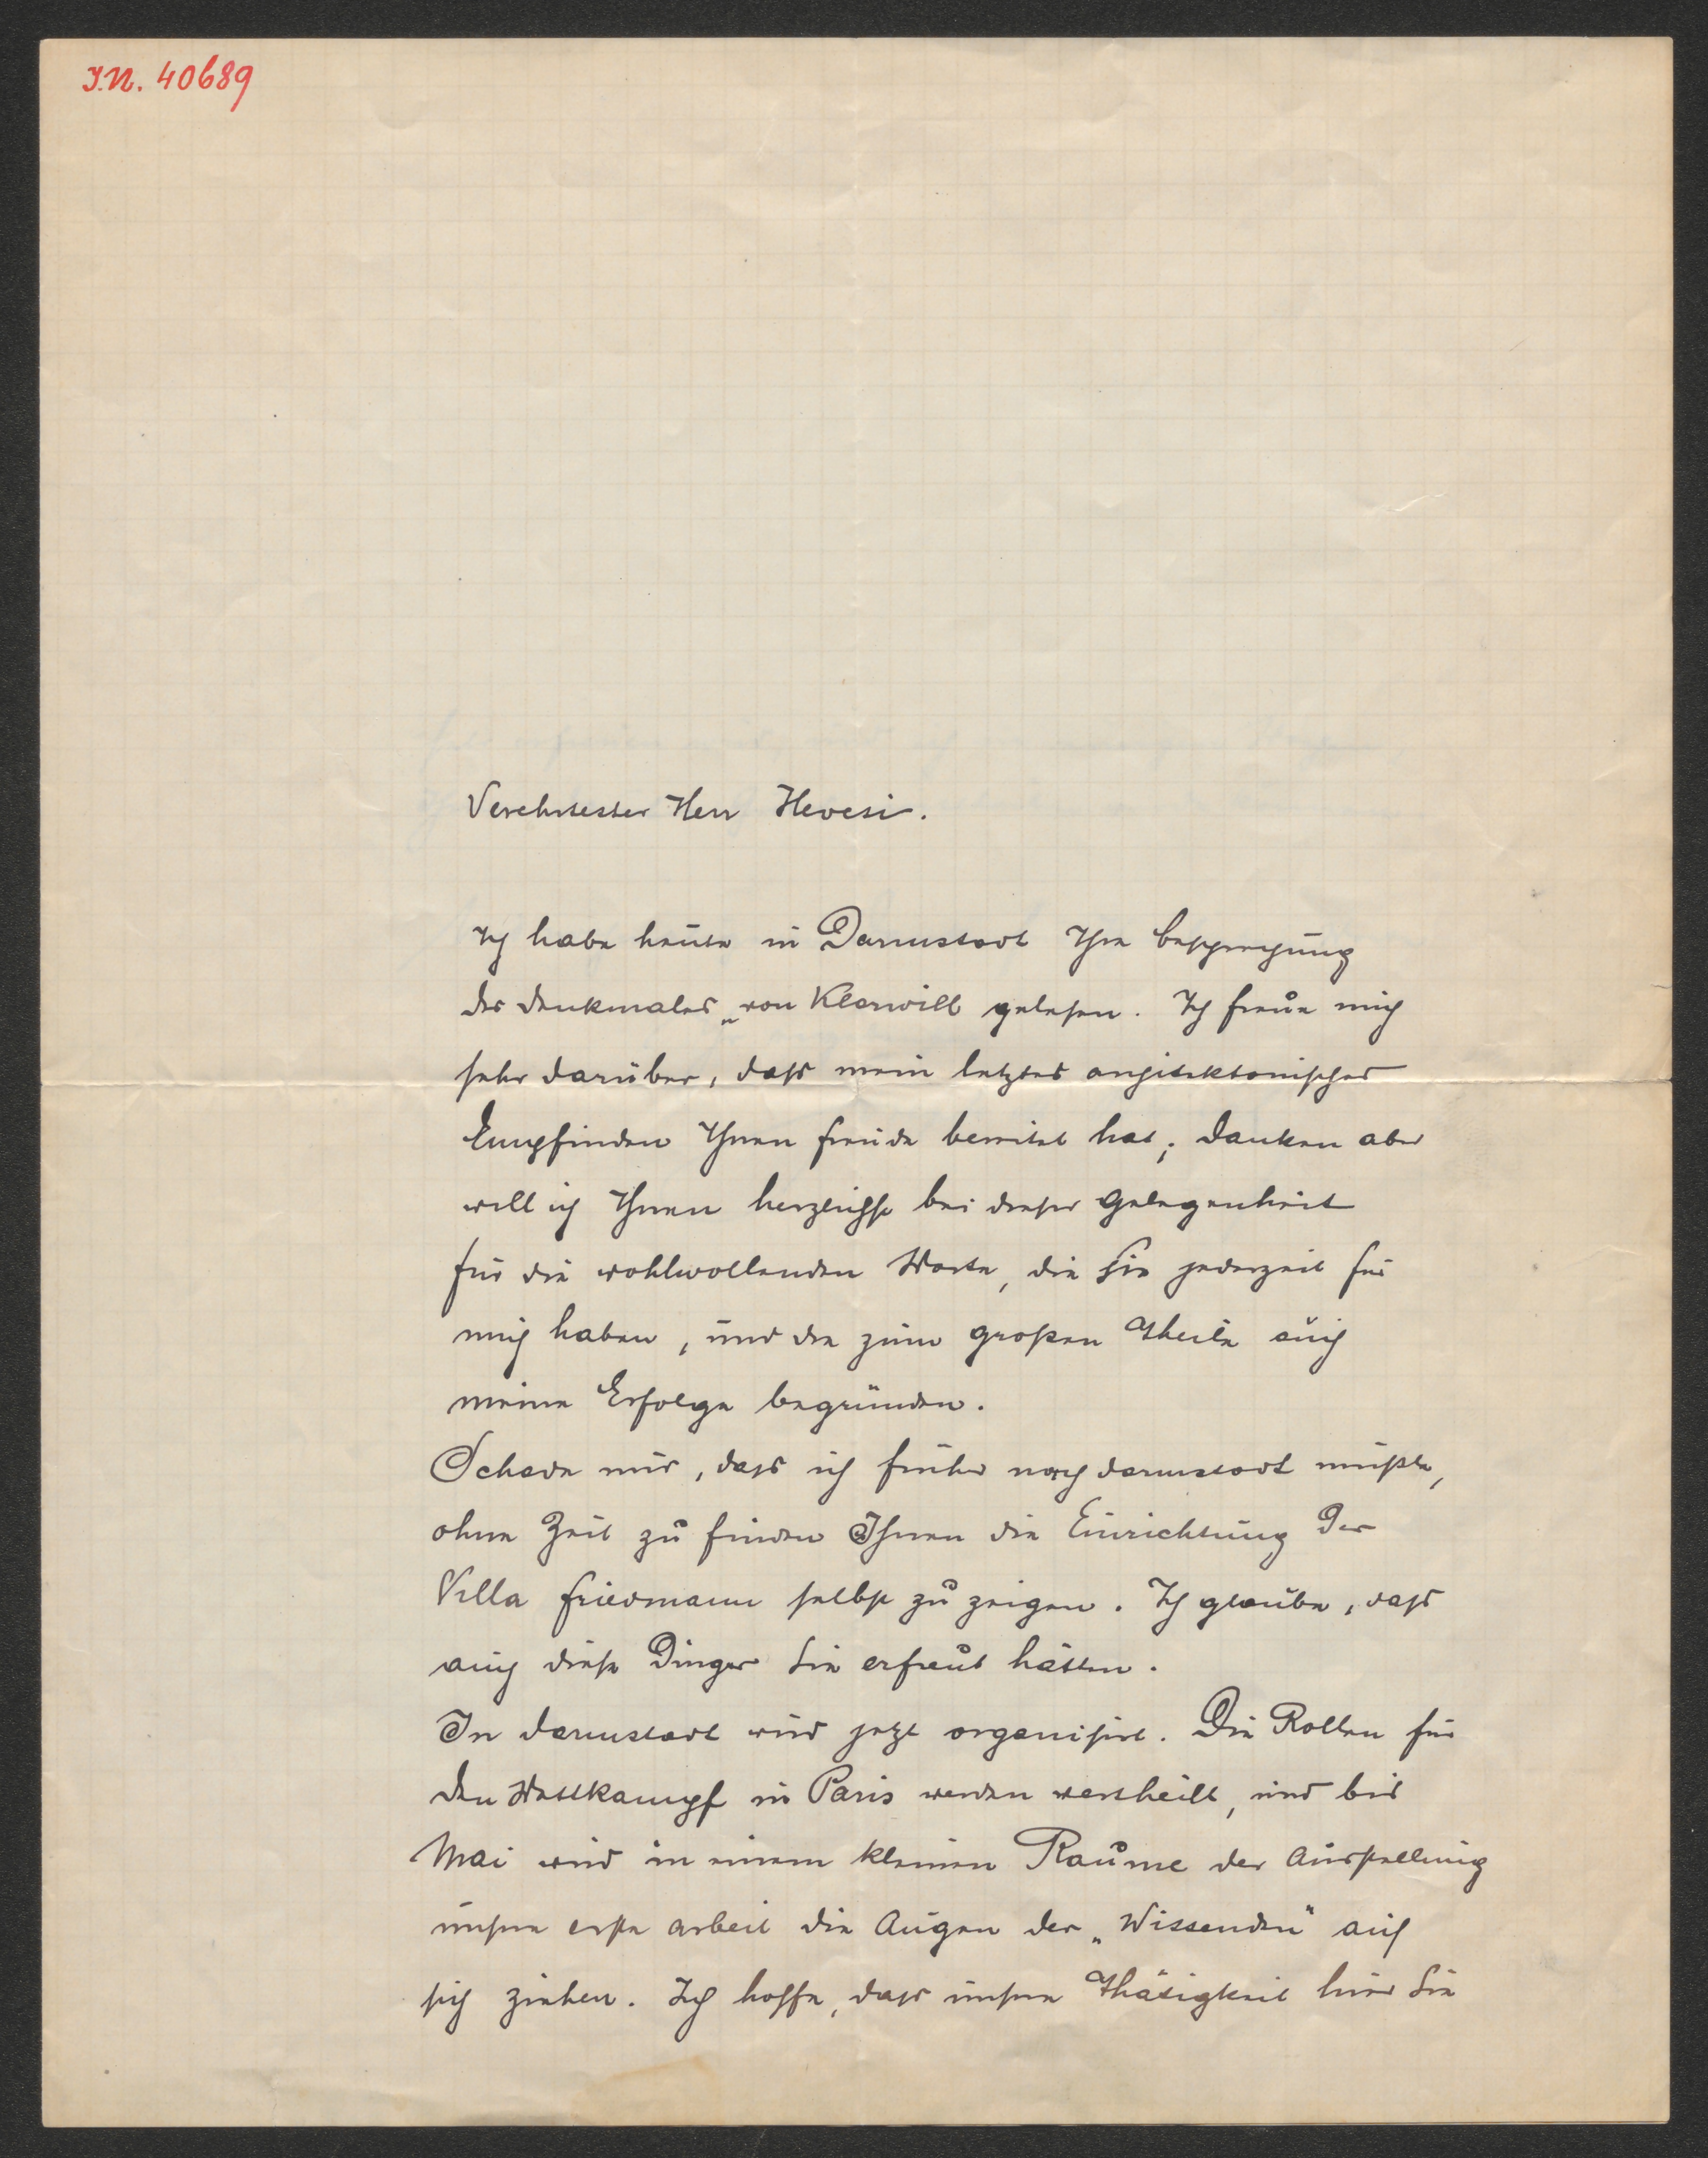 I.N. 40689
Verehrtester Herr Hevesi.
Ich habe heute in Darmstadt Ihre Besprechung
des Denkmales „von Klarwill gelesen. Ich freue mich
sehr darüber, dass mein letztes architektonisches
Empfinden Ihnen Freude bereitet hat; danken aber
will ich Ihnen herzlichst bei dieser Gelegenheit
für die wohlwollenden Worte, die Sie jederzeit für
mich haben, und die zum großen Theile auch
meine Erfolge begründen.
Schade nur, dass ich früher nach Darmstadt mußte,
ohne Zeit zu finden Ihnen die Einrichtung der
Villa Friedmann selbst zu zeigen. Ich glaube, dass
auch diese Dinger Sie erfreut hätten.
In Darmstadt wird jetzt organisirt. Die Rollen für
den Wettkampf in Paris werden vertheilt, und bis
Mai wird in einem kleinen Raume der Ausstellung
unsere erste Arbeit die Augen der „Wissenden" auf
sich ziehen. Ich hoffe, dass unsere Thätigkeit hier Sie